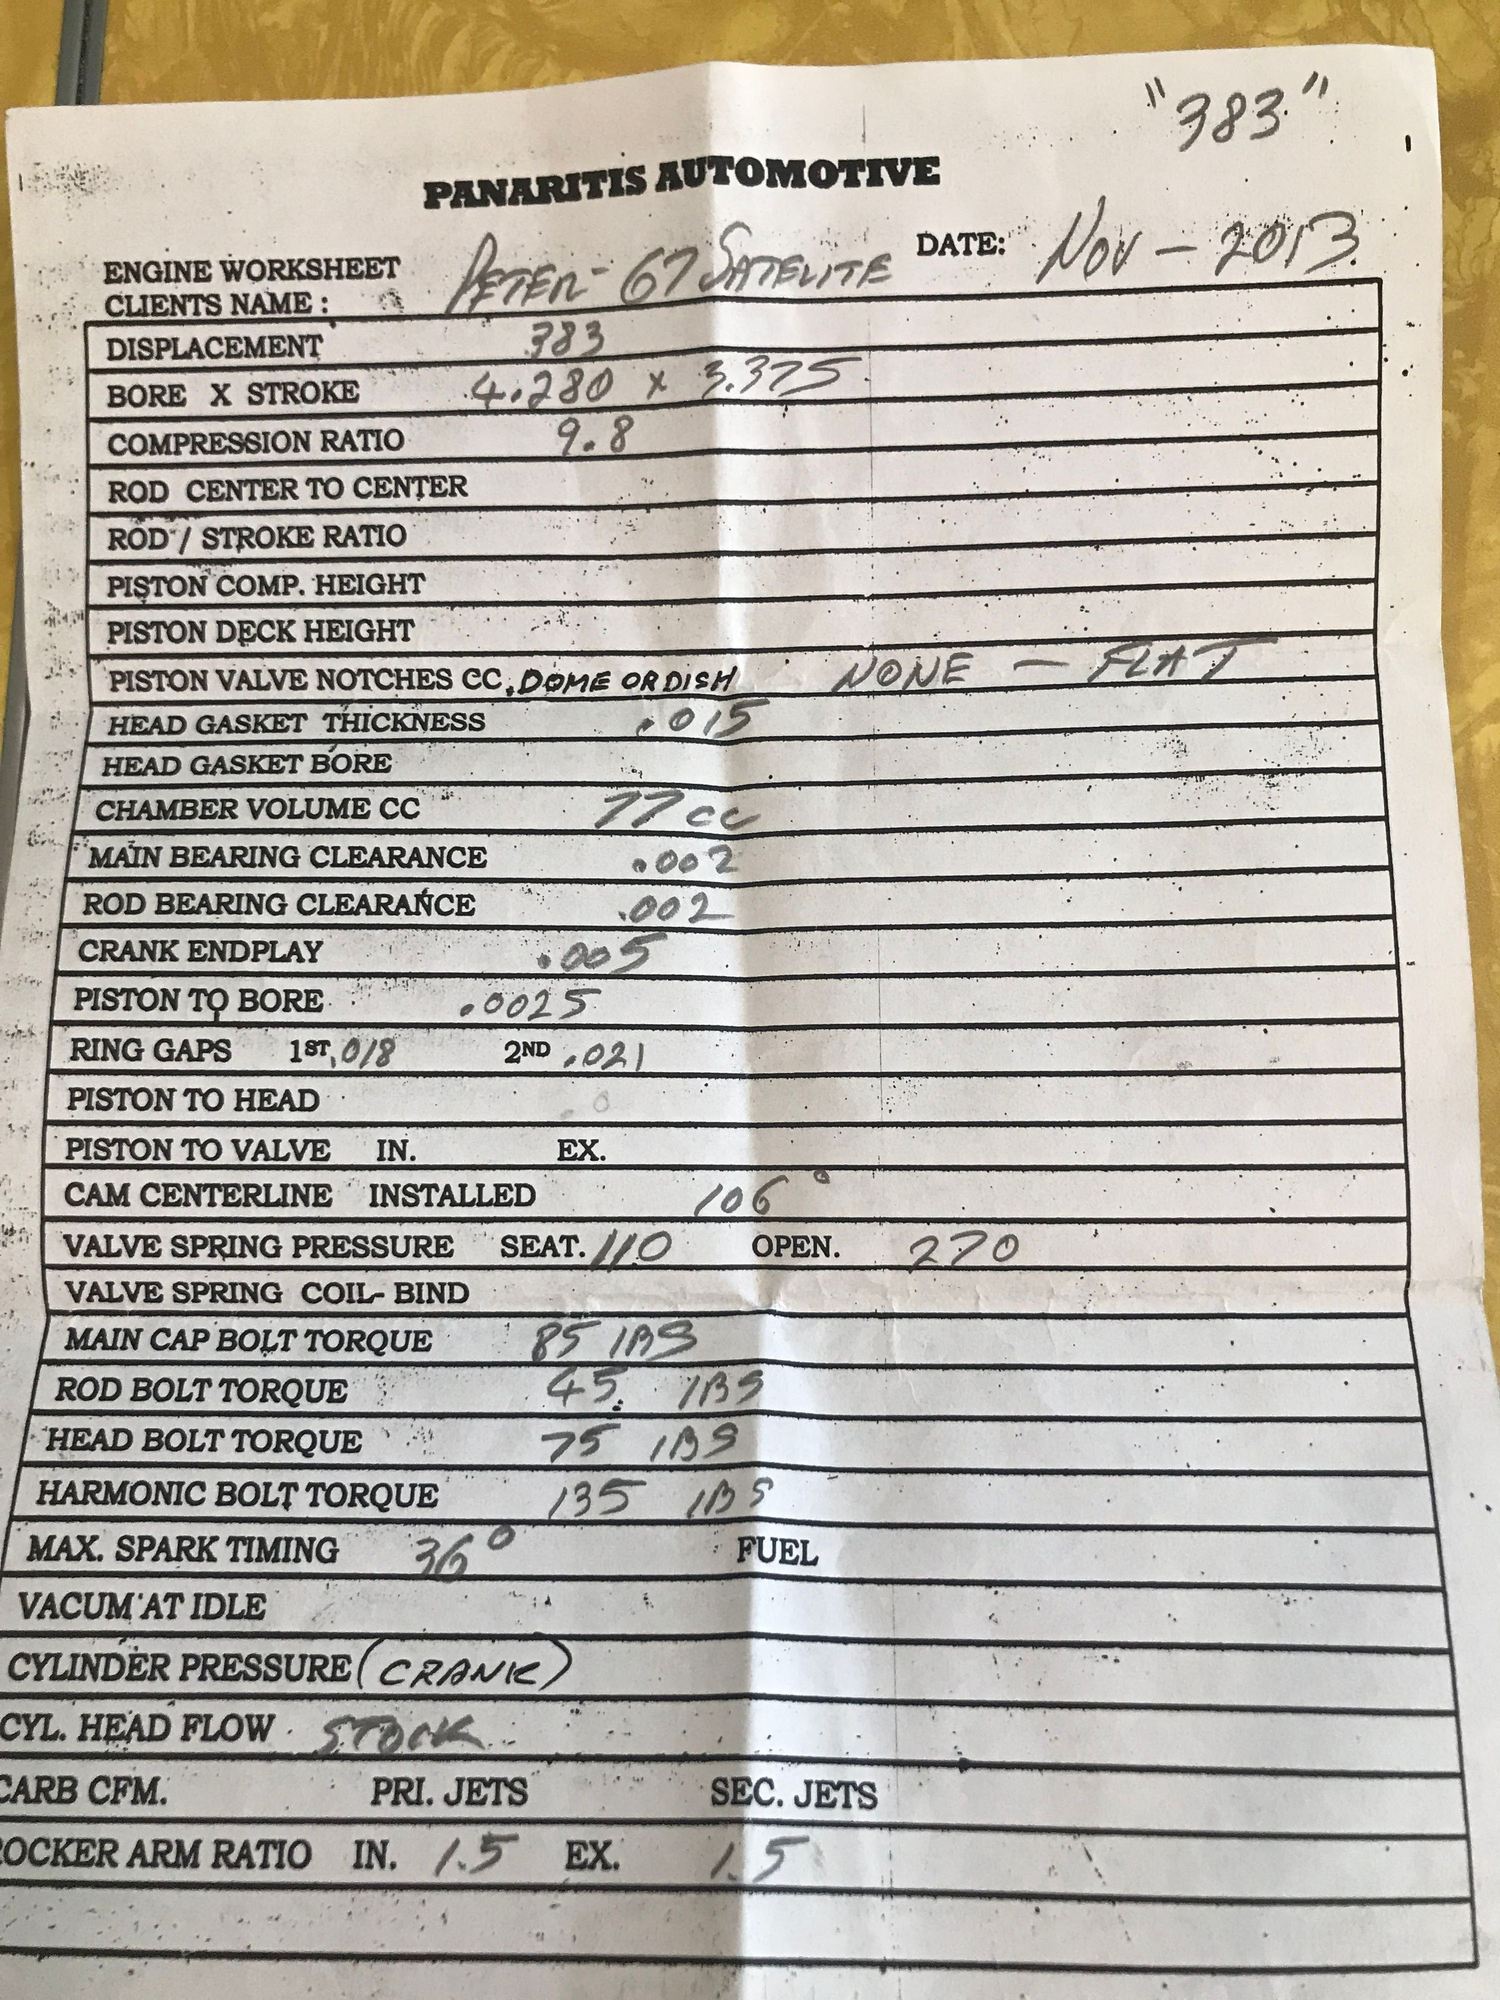 "383"
PANARITIS AUTOMOTIVE
ENGINE WORKSHEET DATE: Nov - 2013
CLIENTS NAME : PETER - 67 SATELITE
DISPLACEMENT 383
BORE X STROKE 4.280 x 3.375
COMPRESSION RATIO 9.8
ROD CENTER TO CENTER
ROD / STROKE RATIO
PISTON COMP. HEIGHT
PISTON DECK HEIGHT
PISTON VALVE NOTCHES CC, DOME OR DISH NONE - FLAT
HEAD GASKET THICKNESS .015
HEAD GASKET BORE
CHAMBER VOLUME CC 77 cc
MAIN BEARING CLEARANCE .002
ROD BEARING CLEARANCE .002
CRANK ENDPLAY .005
PISTON TO BORE .0025
RING GAPS 1ST .018 2ND .021
PISTON TO HEAD
PISTON TO VALVE IN. EX.
CAM CENTERLINE INSTALLED 106°
VALVE SPRING PRESSURE SEAT. 110 OPEN. 270
VALVE SPRING COIL- BIND
MAIN CAP BOLT TORQUE 85 lBS
ROD BOLT TORQUE 45 lBS
HEAD BOLT TORQUE 75 lBS
HARMONIC BOLT TORQUE 135 lBS
MAX. SPARK TIMING 36° FUEL
VACUM AT IDLE
CYLINDER PRESSURE (CRANK)
CYL. HEAD FLOW STOCK
CARB CFM. PRI. JETS SEC. JETS
OCKER ARM RATIO IN. 1.5 EX. 1.5